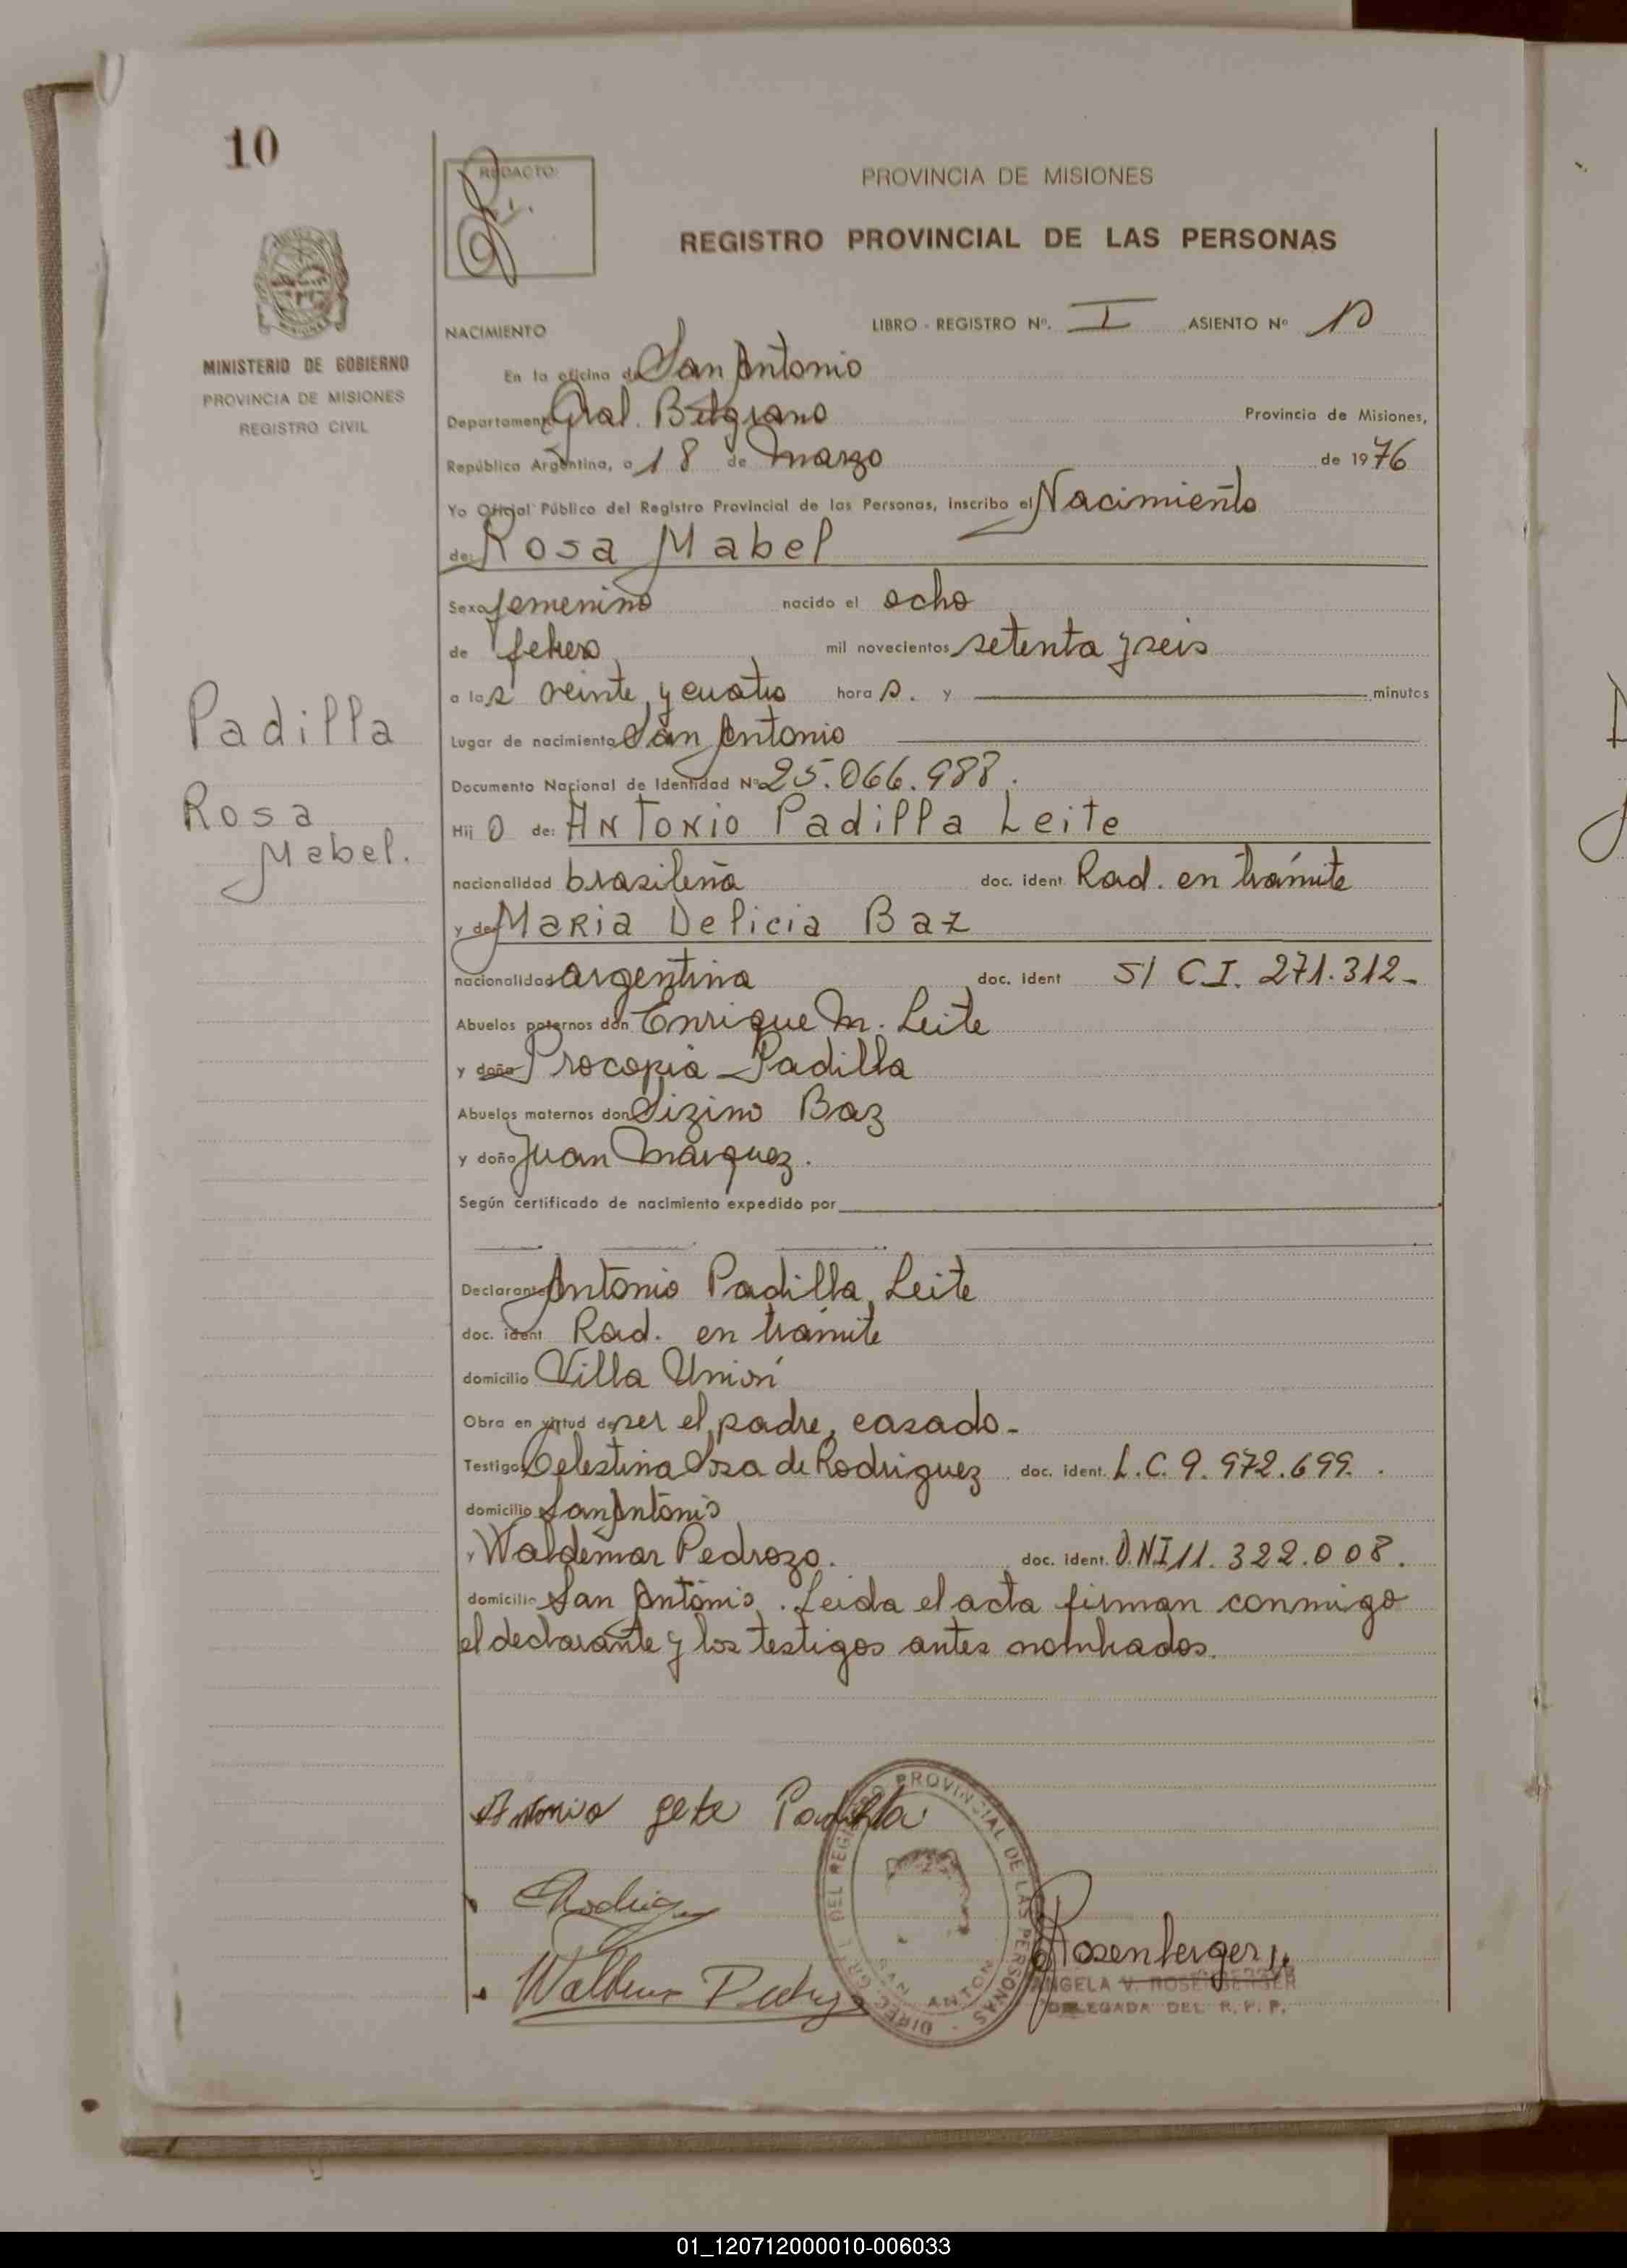 10
REDACTO:
PROVINCIA DE MISIONES
REGISTRO PROVINCIAL DE LAS PERSONAS
MINISTERIO DE GOBIERNO
PROVINCIA DE MISIONES
REGISTRO CIVIL
NACIMIENTO LIBRO - REGISTRO Nº. I ASIENTO Nº 10
En la oficina de San Antonio
Departamento Gral. Belgrano Provincia de Misiones,
República Argentina, a 18 de Marzo de 1976
Yo Oficial Público del Registro Provincial de las Personas, inscribo el Nacimiento
de: Rosa Mabel
Sexo femenino nacido el ocho
de febero mil novecientos setenta y seis
a las veinte y cuatro horas. y minutos
Lugar de nacimiento San Antonio
Documento Nacional de Identidad Nº 25.066.988.
Padilla
Rosa
Mabel.
Hijo de: Antonio Padilla Leite
nacionalidad brasileña doc. ident. Rad. en trámite
y de: Maria Delicia Baz
nacionalidad argentina doc. ident S/ C.I. 271.312-
Abuelos paternos don Enrique M. Leite
y doña Procopia Padilla
Abuelos maternos don Sizino Baz
y doña Juan Marquez.
Según certificado de nacimiento expedido por
Declarante Antonio Padilla Leite
doc. ident. Rad. en trámite
domicilio Villa Unión
Obra en virtud de ser el padre, casado-
Testigo: Celestina Sosa de Rodriguez doc. ident. L.C. 9.972.699.
domicilio San Antonio
y Waldemar Pedrozo. doc. ident. D.N.I 11.322.008.
domicilio San Antonio. Leida el acta firman conmigo
el declarante y los testigos antes nombrados.
Antonio Padilla
Rosenberger
ANGELA V. ROSENBERGER
DELEGADA DEL R. P. P.
DIREC. GRL. DEL REGISTRO PROVINCIAL DE LAS PERSONAS
SAN ANTONIO
01_120712000010-006033